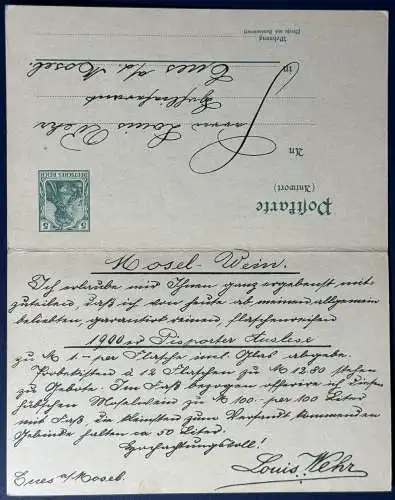 Postkarte
(Antwort)
DEUTSCHES REICH
5 5
An
Herrn Louis Wehr
in Cues a/d. Mosel.
Wohnung
(Straße und Hausnummer)
Mosel-Wein.
Ich erlaube mir Ihnen ganz ergebenst mit-
zuteilen, daß ich von heute ab meinen allgemein
beliebten, garantirt reinen, flaschenreifen
1900er Piesporter Auslese
zu M 1.- per Flasche incl. Glas abgebe.
Probekisten à 12 Flaschen zu M 12.80 stehen
zu Gebote. Im Faß bezogen offerire ich diesen
hübschen Moselwein zu M 100.- per 100 Liter
mit Faß, die kleinsten zum Versandt kommenden
Gebinde halten ca. 50 Liter.
Hochachtungsvoll!
Louis Wehr.
Cues a/Mosel.